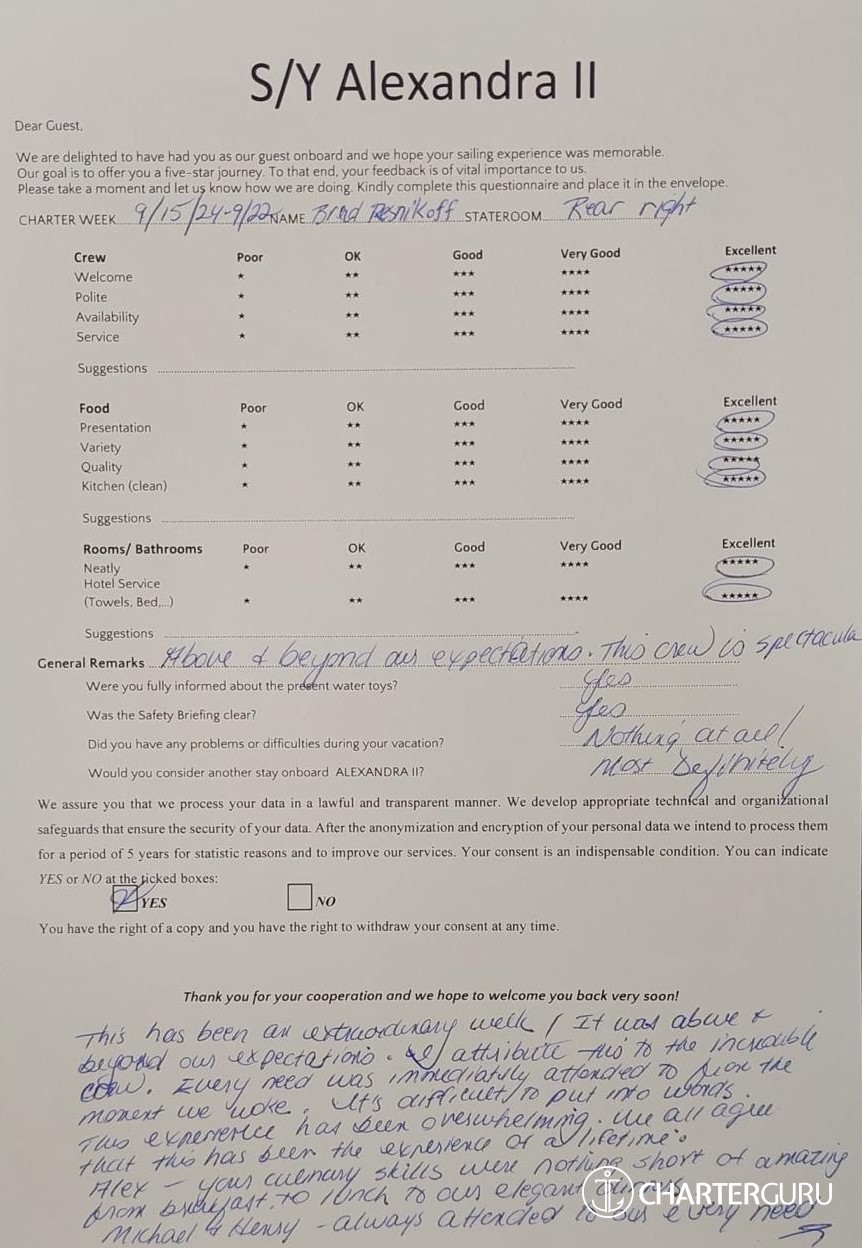 S/Y Alexandra II
Dear Guest,
We are delighted to have had you as our guest onboard and we hope your sailing experience was memorable.
Our goal is to offer you a five-star journey. To that end, your feedback is of vital importance to us.
Please take a moment and let us know how we are doing. Kindly complete this questionnaire and place it in the envelope.
CHARTER WEEK 9/15/24-9/22 NAME Brad Resnikoff STATEROOM Rear right
Crew Poor OK Good Very Good Excellent
Welcome ★ ★★ ★★★ ★★★★ ★★★★★
Polite ★ ★★ ★★★ ★★★★ ★★★★★
Availability ★ ★★ ★★★ ★★★★ ★★★★★
Service ★ ★★ ★★★ ★★★★ ★★★★★
Suggestions
Food Poor OK Good Very Good Excellent
Presentation ★ ★★ ★★★ ★★★★ ★★★★★
Variety ★ ★★ ★★★ ★★★★ ★★★★★
Quality ★ ★★ ★★★ ★★★★ ★★★★★
Kitchen (clean) ★ ★★ ★★★ ★★★★ ★★★★★
Suggestions
Rooms/ Bathrooms Poor OK Good Very Good Excellent
Neatly ★ ★★ ★★★ ★★★★ ★★★★★
Hotel Service
(Towels, Bed,...) ★ ★★ ★★★ ★★★★ ★★★★★
Suggestions
General Remarks Above & beyond our expectations. This crew is spectacula
Were you fully informed about the present water toys? Yes
Was the Safety Briefing clear? Yes
Did you have any problems or difficulties during your vacation? Nothing at all!
Would you consider another stay onboard ALEXANDRA II? Most Definitely
We assure you that we process your data in a lawful and transparent manner. We develop appropriate technical and organizational
safeguards that ensure the security of your data. After the anonymization and encryption of your personal data we intend to process them
for a period of 5 years for statistic reasons and to improve our services. Your consent is an indispensable condition. You can indicate
YES or NO at the ticked boxes:
YES NO
You have the right of a copy and you have the right to withdraw your consent at any time.
Thank you for your cooperation and we hope to welcome you back very soon!
This has been an extraordinary week! It was above &
beyond our expectations. I attribute this to the incredible
crew. Every need was immediately attended to from the
moment we woke. It's difficult to put into words.
This experience has been overwhelming. We all agree
that this has been the experience of a lifetime.
Alex - your culinary skills were nothing short of amazing
from breakfast, to lunch to our elegant dinners
Michael & Henry - always attended to our every need
CHARTERGURU